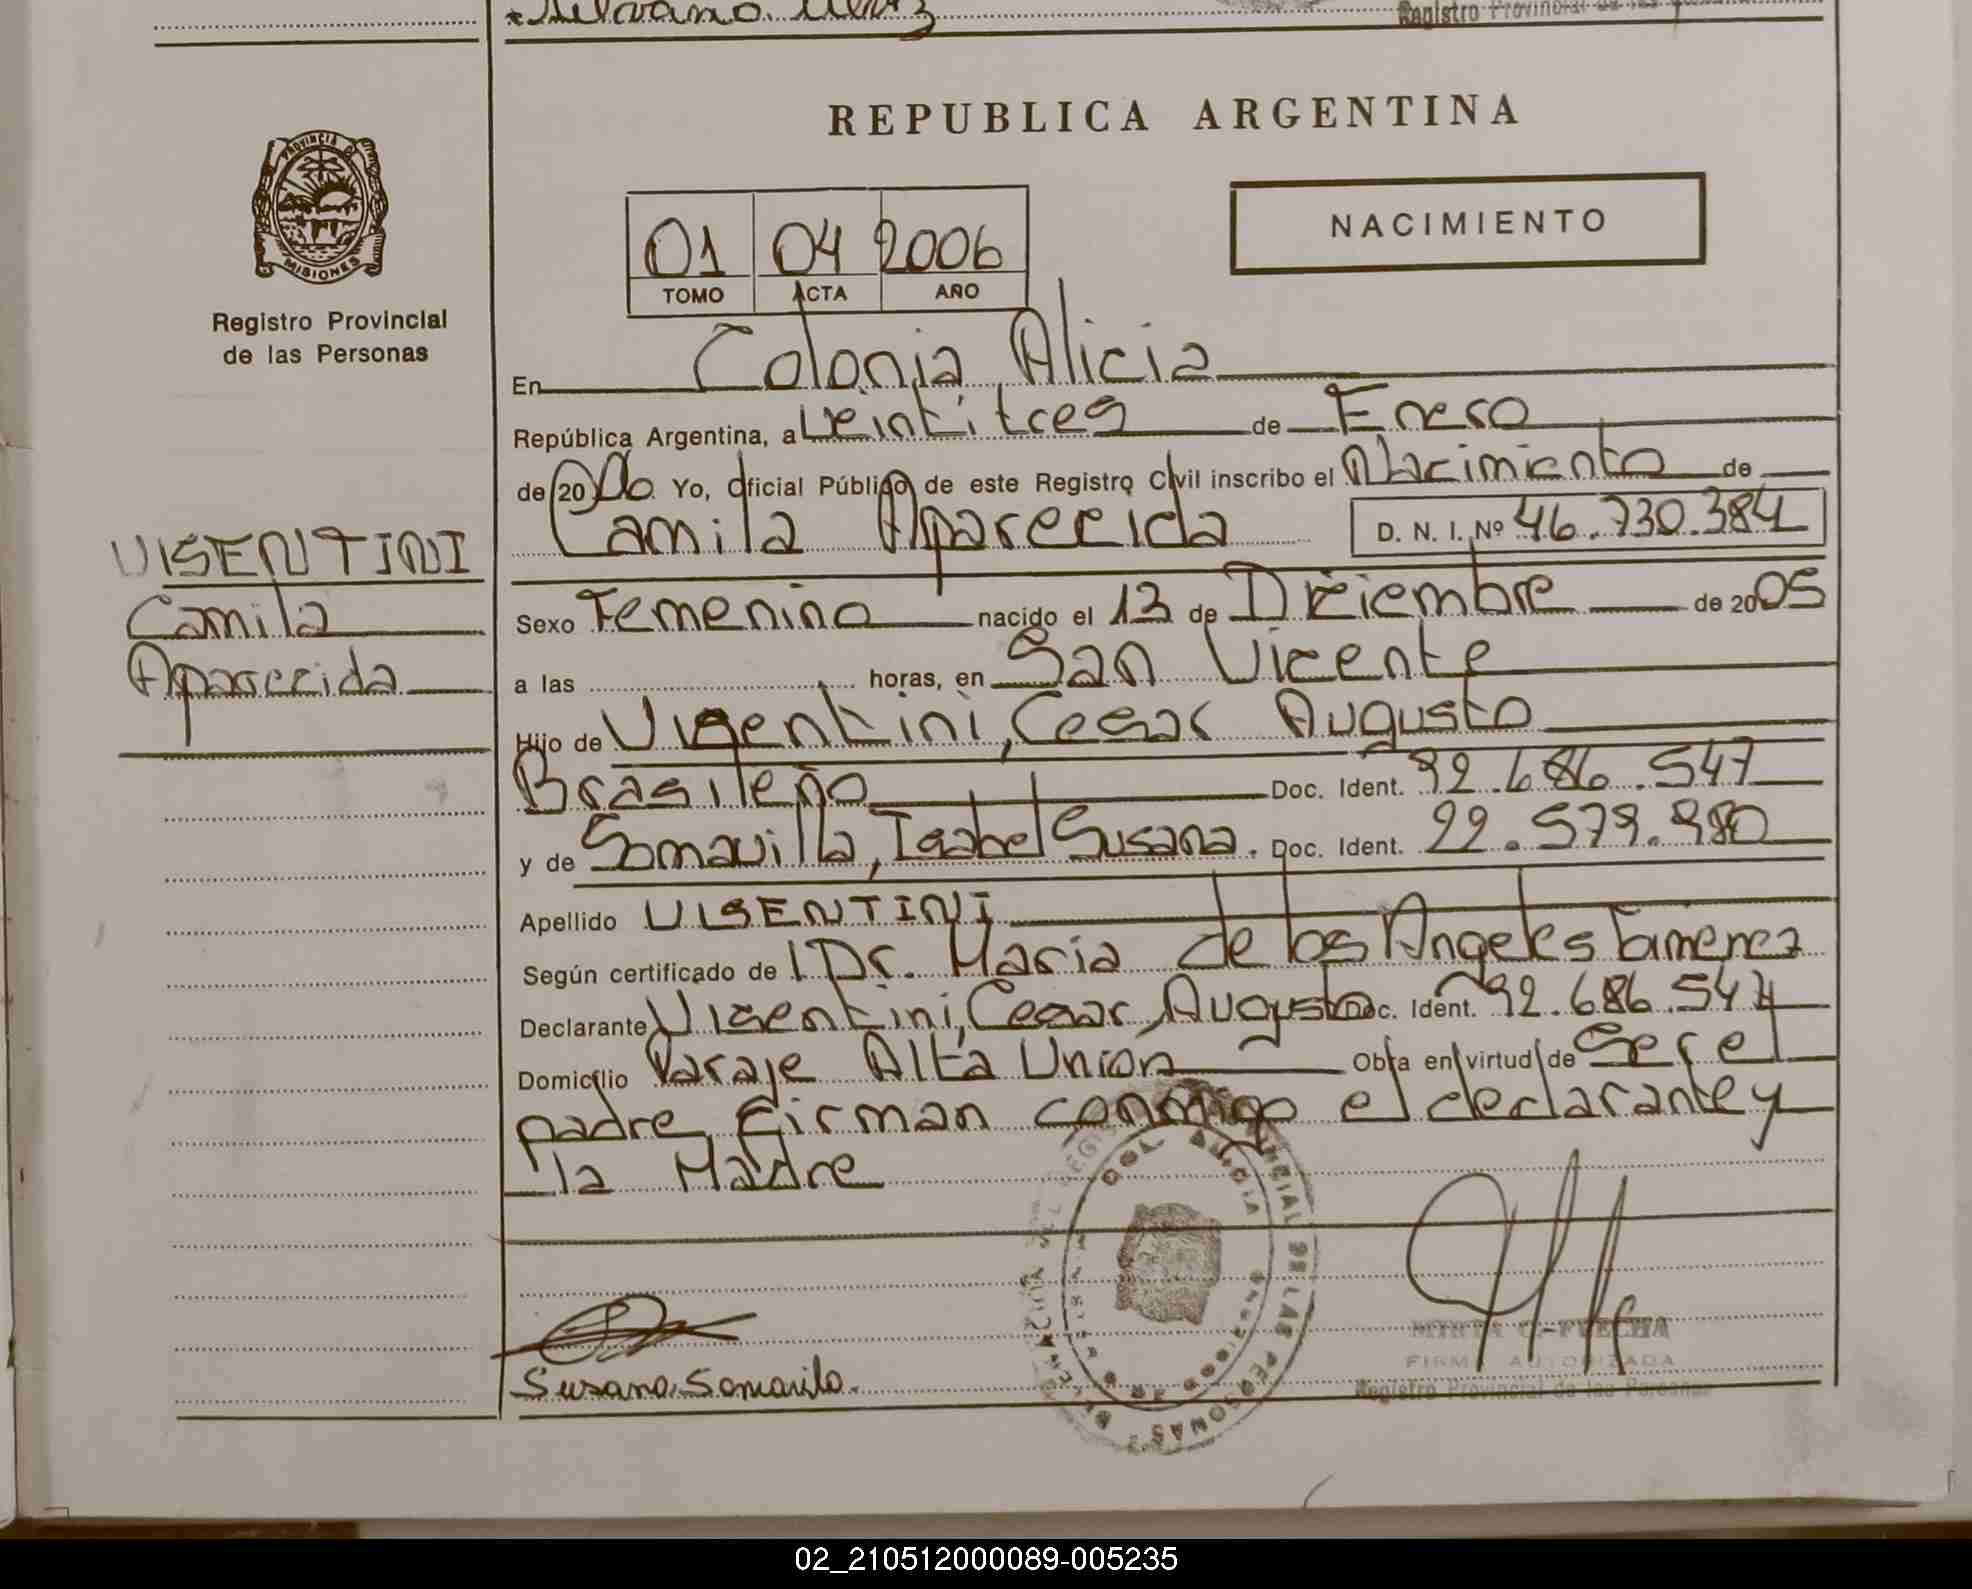 Registro Provincial de las
REPUBLICA ARGENTINA
PROVINCIA DE
MISIONES
Registro Provincial
de las Personas
01 04 2006
TOMO ACTA AÑO
NACIMIENTO
En Colonia Alicia
República Argentina, a Veintitres de Enero
de 2006 Yo, Oficial Público de este Registro Civil inscribo el Nacimiento de
Camila Aparecida D. N. I. Nº 46.730.384
VISENTINI
Camila
Aparecida
Sexo Femenino nacido el 13 de Diciembre de 2005
a las horas, en San Vicente
Hijo de Visentini, Cesar Augusto
Brasileño Doc. Ident. 92.686.547
y de Somavilla, Isabel Susana. Doc. Ident. 22.579.980
Apellido VISENTINI
Según certificado de Dr. Maria de los Angeles
Declarante Visentini, Cesar Augusto Doc. Ident. 92.686.547
Domicilio Paraje Alta Union Obra en virtud de Ser el
padre Firman conmigo el declarante y
la Madre
COL. ALICIA
REGISTRO PROVINCIAL DE LAS PERSONAS
MIRTA C. FLECHA
FIRMA AUTORIZADA
Registro Provincial de las Personas
Susana Somavila.
02_210512000089-005235